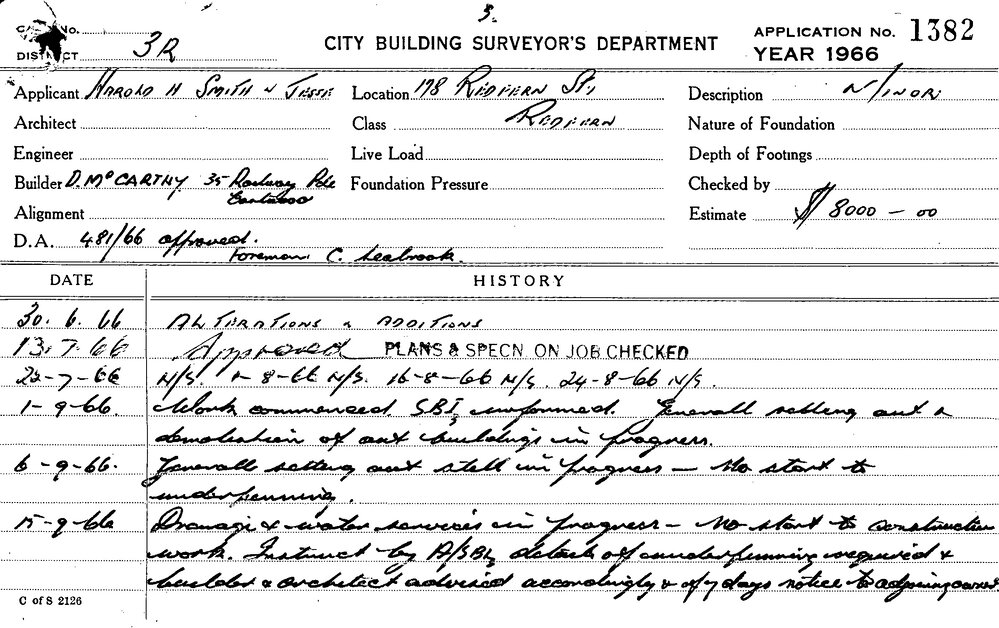 3.
No.
DISTRICT 3R
CITY BUILDING SURVEYOR'S DEPARTMENT
APPLICATION No. 1382
YEAR 1966
Applicant HAROLD H SMITH & JESSE
Location 178 REDFERN ST,
Description MINOR
Architect
Class REDFERN
Nature of Foundation
Engineer
Live Load
Depth of Footings
Builder D. McCARTHY 35 Railway Pde
Eastwood
Foundation Pressure
Checked by
Alignment
Estimate $ 8000 - 00
D.A. 481/66 approved.
Foreman C. Seabrook.
DATE HISTORY
30. 6. 66 ALTERATIONS & ADDITIONS
13. 7. 66 Approved PLANS & SPECN. ON JOB CHECKED
22-7-66 N/S. 1-8-66 N/S. 16-8-66 N/S. 24-8-66 N/S.
1-9-66. Work commenced SBI, informed. Generall setting out &
demolition of out buildings in progress.
6-9-66. Generall setting out still in progress — No start to
underpinning.
15-9-66 Drainage & water services in progress — No start to construction
work. Instruct by A/SBI, details of underpinning required &
builder & architect advised accordingly & of 7 days notice to
C of S 2126